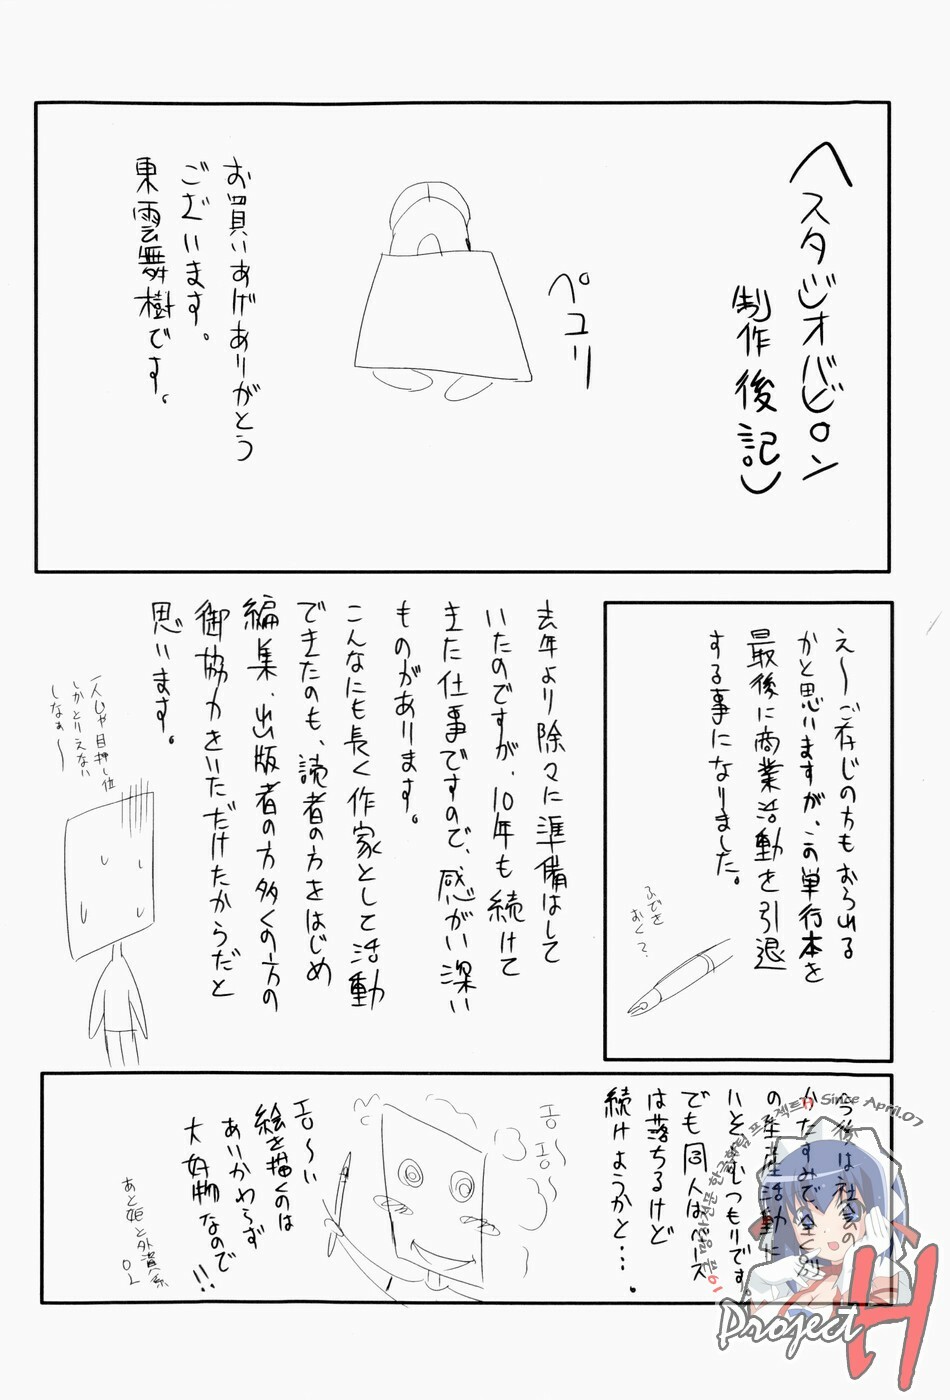 へスタジオバビロン
制作後記
ペコリ
お買いあげありがとう
ございます。
東雲舞樹です。
え〜ご存じの方もおられる
かと思いますが、この単行本を
最後に商業活動を引退
する事になりました。
ふでを
おく?
去年より除々に準備はして
いたのですが、10年も続けて
きた仕事ですので、感がい深い
ものがあります。
こんなにも長く作家として活動
できたのも、読者の方をはじめ
編集、出版者の方多くの方の
御協力をいただけたからだと
思います。
一人じゃ目押し位
しかとりえない
しなぁ〜
今後は社会の
かたすみで全く別
の生産活動に
いそしむつもりです。
でも同人はペース
は落ちるけど
続けようかと…。
エロ〜
エロ〜
エロ〜い
絵を描くのは
あいかわらず
大好物なので
!!
あと姫と外道系
OL
Since April.07
Project H